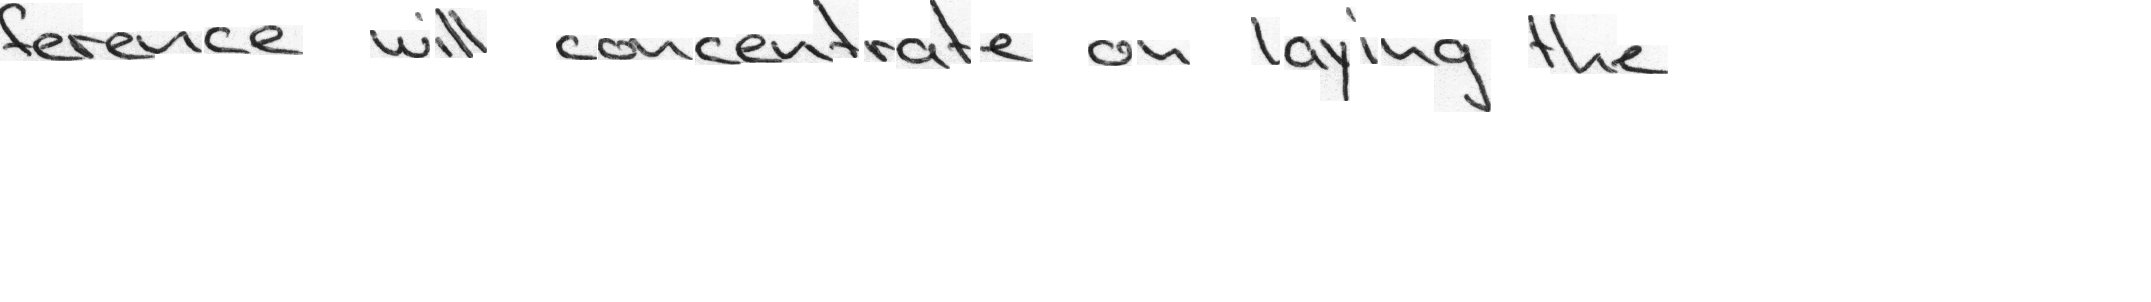 ference will concentrate on laying the